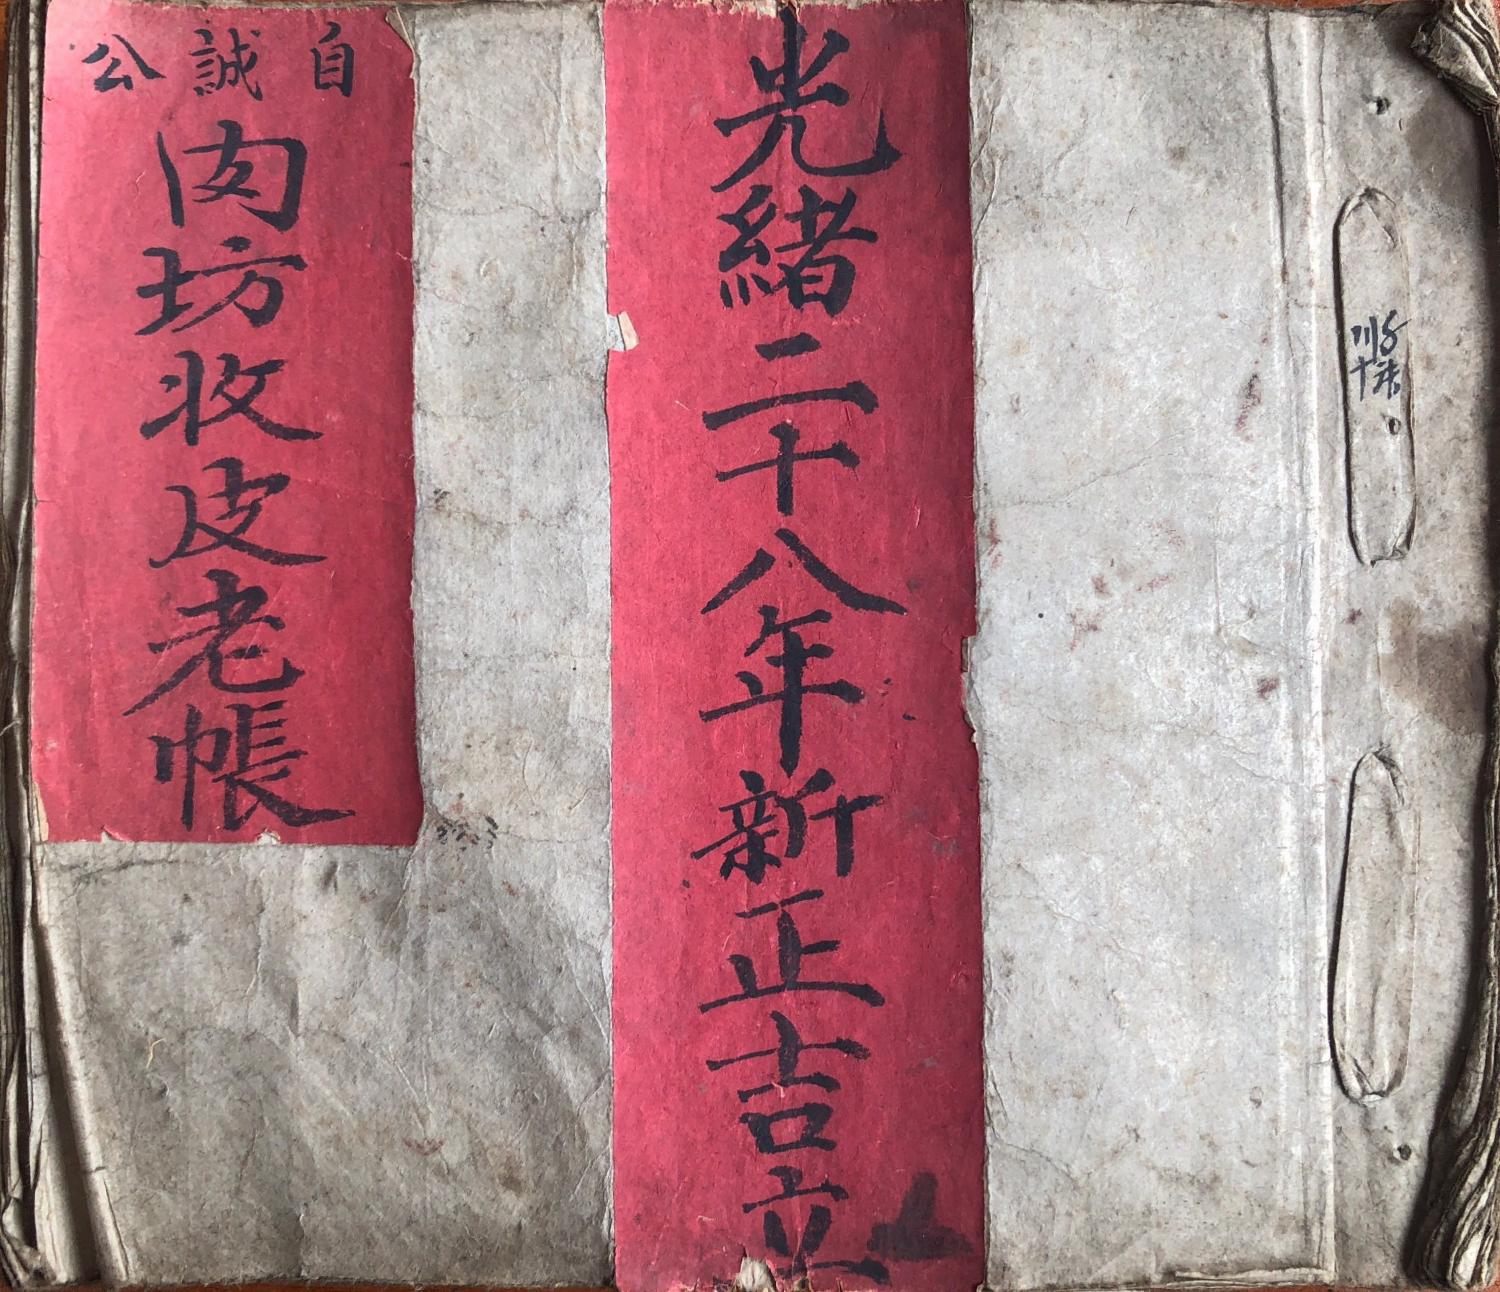 光緒二十八年新正吉立
自誠公
肉坊收皮老帳